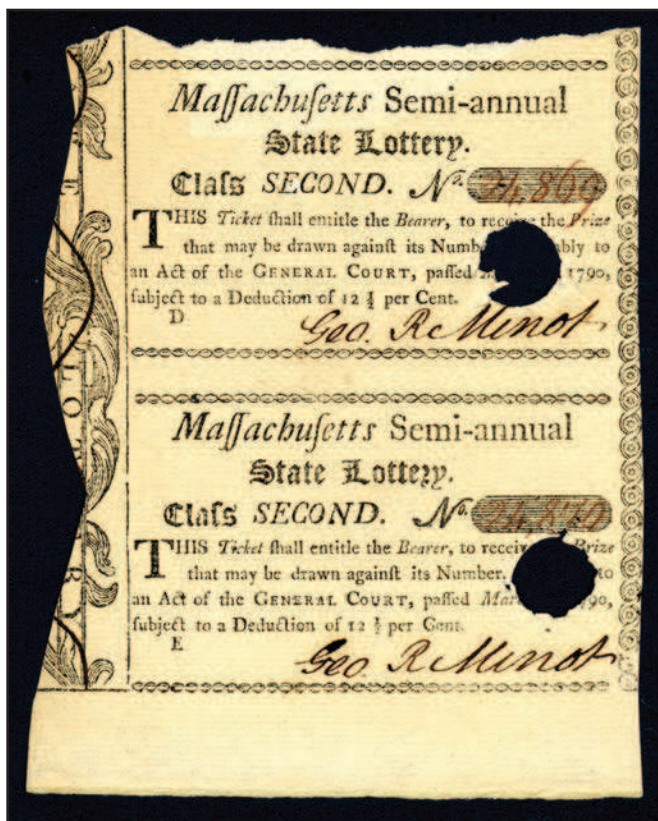 Maſſachuſetts Semi-annual
State Lottery.
Claſs SECOND. No. 24,869
THIS Ticket ſhall entitle the Bearer, to receive the Prize
that may be drawn against its to
an Act of the GENERAL COURT, paſſed 1790,
ſubject to a Deduction of 12 ½ per Cent.
D
Geo. R. Minot
Maſſachuſetts Semi-annual
State Lottery.
Claſs SECOND. No. 24,870
THIS Ticket ſhall entitle the Bearer, to Prize
that may be drawn againſt its Number, to
an Act of the GENERAL COURT, paſſed
ſubject to a Deduction of 12 ½ per Cent.
E
Geo. R. Minot